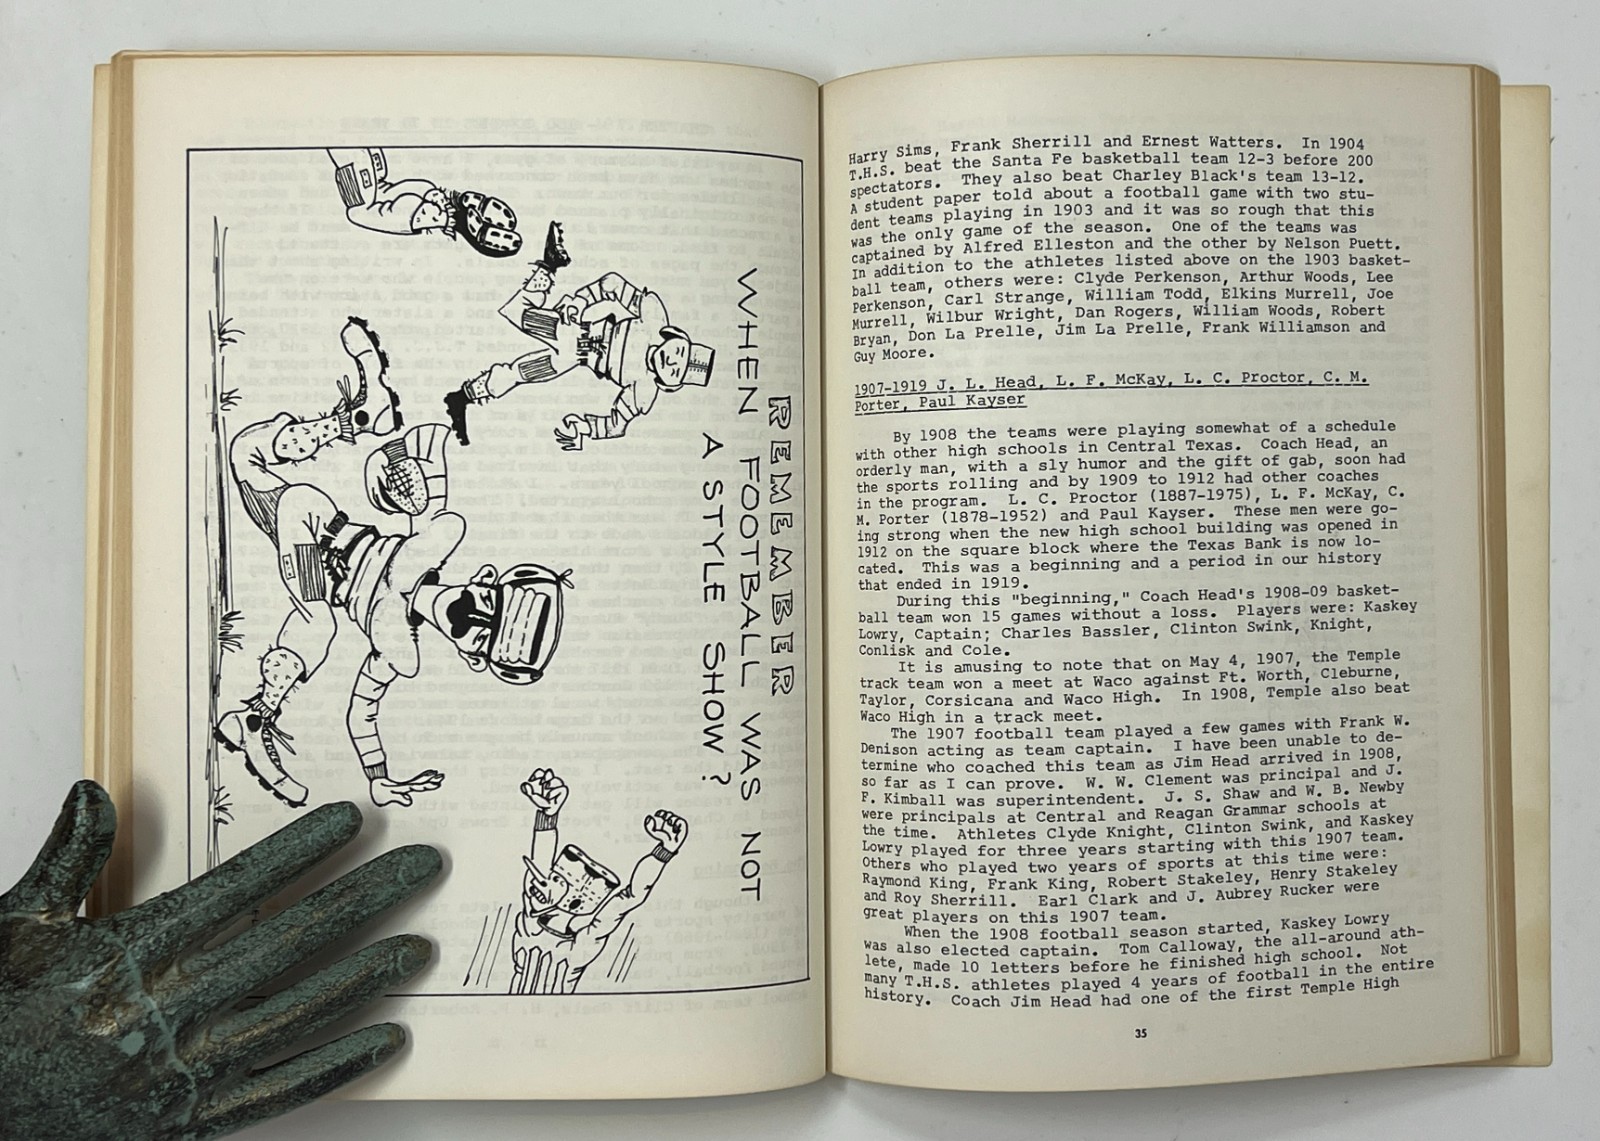 REMEMBER
WHEN FOOTBALL WAS NOT
A STYLE SHOW?
Harry Sims, Frank Sherrill and Ernest Watters. In 1904
T.H.S. beat the Santa Fe basketball team 12-3 before 200
spectators. They also beat Charley Black's team 13-12.
A student paper told about a football game with two stu-
dent teams playing in 1903 and it was so rough that this
was the only game of the season. One of the teams was
captained by Alfred Elleston and the other by Nelson Puett.
In addition to the athletes listed above on the 1903 basket-
ball team, others were: Clyde Perkenson, Arthur Woods, Lee
Perkenson, Carl Strange, William Todd, Elkins Murrell, Joe
Murrell, Wilbur Wright, Dan Rogers, William Woods, Robert
Bryan, Don La Prelle, Jim La Prelle, Frank Williamson and
Guy Moore.
1907-1919 J. L. Head, L. F. McKay, L. C. Proctor, C. M.
Porter, Paul Kayser
By 1908 the teams were playing somewhat of a schedule
with other high schools in Central Texas. Coach Head, an
orderly man, with a sly humor and the gift of gab, soon had
the sports rolling and by 1909 to 1912 had other coaches
in the program. L. C. Proctor (1887-1975), L. F. McKay, C.
M. Porter (1878-1952) and Paul Kayser. These men were go-
ing strong when the new high school building was opened in
1912 on the square block where the Texas Bank is now lo-
cated. This was a beginning and a period in our history
that ended in 1919.
During this "beginning," Coach Head's 1908-09 basket-
ball team won 15 games without a loss. Players were: Kaskey
Lowry, Captain; Charles Bassler, Clinton Swink, Knight,
Conlisk and Cole.
It is amusing to note that on May 4, 1907, the Temple
track team won a meet at Waco against Ft. Worth, Cleburne,
Taylor, Corsicana and Waco High. In 1908, Temple also beat
Waco High in a track meet.
The 1907 football team played a few games with Frank W.
Denison acting as team captain. I have been unable to de-
termine who coached this team as Jim Head arrived in 1908,
so far as I can prove. W. W. Clement was principal and J.
F. Kimball was superintendent. J. S. Shaw and W. B. Newby
were principals at Central and Reagan Grammar schools at
the time. Athletes Clyde Knight, Clinton Swink, and Kaskey
Lowry played for three years starting with this 1907 team.
Others who played two years of sports at this time were:
Raymond King, Frank King, Robert Stakeley, Henry Stakeley
and Roy Sherrill. Earl Clark and J. Aubrey Rucker were
great players on this 1907 team.
When the 1908 football season started, Kaskey Lowry
was also elected captain. Tom Calloway, the all-around ath-
lete, made 10 letters before he finished high school. Not
many T.H.S. athletes played 4 years of football in the entire
history. Coach Jim Head had one of the first Temple High
35